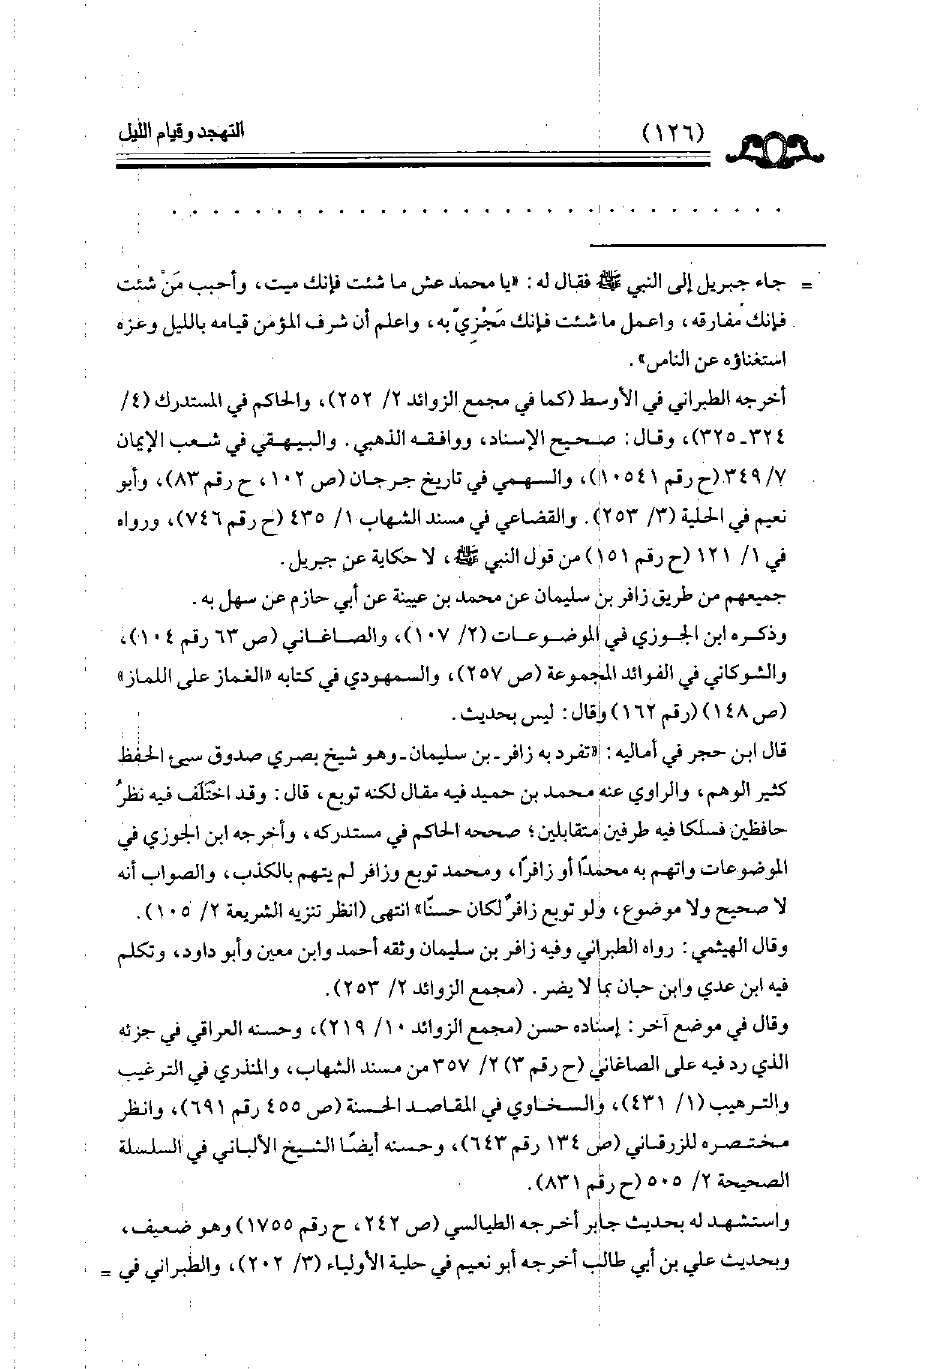 التهجد وقيام الليل (١٢٦)
. . . . . . . . . . . . . . . . . . . . . . . . . . . . . .
= جاء جبريل إلى النبي ﷺ فقال له : «يا محمد عش ما شئت فإنك ميت، وأحبب مَنْ شئت
فإنك مُفارقه، واعمل ما شئت فإنك مَجْزِيّ به، واعلم أن شرف المؤمن قيامه بالليل وعزه
استغناؤه عن الناس» .
أخرجه الطبراني في الأوسط (كما في مجمع الزوائد ٢/ ٢٥٢)، والحاكم في المستدرك (٤/
٣٢٤ـ٣٢٥)، وقال: صحيح الإسناد، ووافقه الذهبي. والبيهقي في شعب الإيمان
٧/ ٣٤٩ (ح رقم ١٠٥٤١)، والسهمي في تاريخ جرجان (ص ١٠٢، ح رقم ٨٣)، وأبو
نعيم في الحلية (٣/ ٢٥٣). والقضاعي في مسند الشهاب ١/ ٤٣٥ (ح رقم ٧٤٦)، ورواه
في ١/ ١٢١ (ح رقم ١٥١) من قول النبي ﷺ، لا حكاية عن جبريل.
جميعهم من طريق زافر بن سليمان عن محمد بن عيينة عن أبي حازم عن سهل به.
وذكره ابن الجوزي في الموضوعات (٢/ ١٠٧)، والصاغاني (ص ٦٣ رقم ١٠٤)،
والشوكاني في الفوائد المجموعة (ص ٢٥٧)، والسمهودي في كتابه «الغماز على اللماز»
(ص ١٤٨) (رقم ١٦٢) وقال: ليس بحديث.
قال ابن حجر في أماليه: «تفرد به زافر ـ بن سليمان ـ وهو شيخ بصري صدوق سيئ الحفظ
كثير الوهم، والراوي عنه محمد بن حميد فيه مقال لكنه توبع، قال: وقد اختَلَف فيه نظرُ
حافظين فسلكا فيه طرفين متقابلين؛ صححه الحاكم في مستدركه، وأخرجه ابن الجوزي في
الموضوعات واتهم به محمدًا أو زافرًا، ومحمد توبع وزافر لم يتهم بالكذب، والصواب أنه
لا صحيح ولا موضوع، ولو توبع زافرٌ لكان حسنًا» انتهى (انظر تنزيه الشريعة ٢/ ١٠٥).
وقال الهيثمي: رواه الطبراني وفيه زافر بن سليمان وثقه أحمد وابن معين وأبو داود، وتكلم
فيه ابن عدي وابن حبان بما لا يضر. (مجمع الزوائد ٢/ ٢٥٣).
وقال في موضع آخر: إسناده حسن (مجمع الزوائد ١٠/ ٢١٩)، وحسنه العراقي في جزئه
الذي رد فيه على الصاغاني (ح رقم ٣) ٢/ ٣٥٧ من مسند الشهاب، والمنذري في الترغيب
والترهيب (١/ ٤٣١)، والسخاوي في المقاصد الحسنة (ص ٤٥٥ رقم ٦٩١)، وانظر
مختصره للزرقاني (ص ١٣٤ رقم ٦٤٣)، وحسنه أيضًا الشيخ الألباني في السلسلة
الصحيحة ٢/ ٥٠٥ (ح رقم ٨٣١).
واستشهد له بحديث جابر أخرجه الطيالسي (ص ٢٤٢، ح رقم ١٧٥٥) وهو ضعيف،
وبحديث علي بن أبي طالب أخرجه أبو نعيم في حلية الأولياء (٣/ ٢٠٢)، والطبراني في =